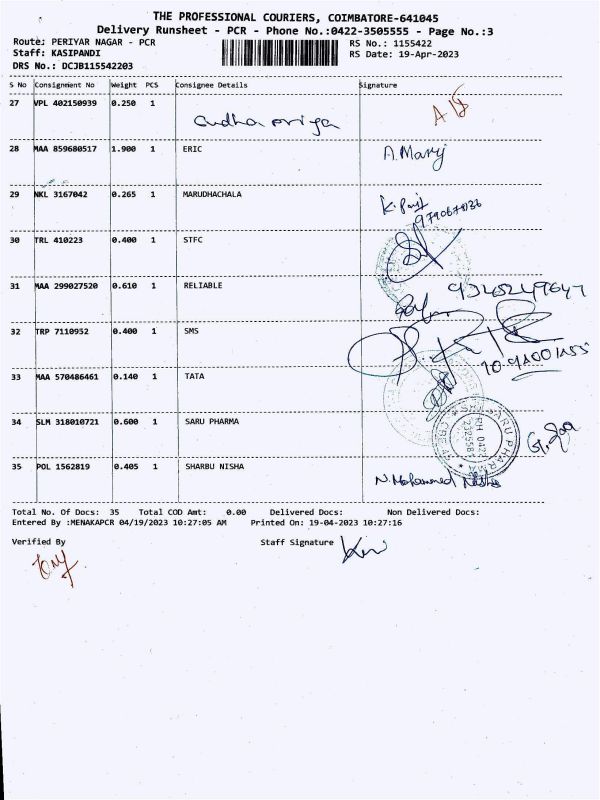 THE PROFESSIONAL COURIERS, COIMBATORE-641045
Delivery Runsheet - PCR - Phone No.:0422-3505555 - Page No.:3
Route: PERIYAR NAGAR - PCR
Staff: KASIPANDI
DRS No.: DCJB115542203
RS No.: 1155422
RS Date: 19-Apr-2023
S No Consignment No Weight PCS Consignee Details Signature
27 VPL 402150939 0.250 1
28 MAA 859680517 1.900 1 ERIC A.Mary
29 NKL 3167042 0.265 1 MARUDHACHALA
30 TRL 410223 0.400 1 STFC
31 MAA 299027520 0.610 1 RELIABLE
32 TRP 7110952 0.400 1 SMS
33 MAA 570486461 0.140 1 TATA
34 SLM 318010721 0.600 1 SARU PHARMA
35 POL 1562819 0.405 1 SHARBU NISHA N.Mohammed Nisha
Total No. Of Docs: 35 Total COD Amt: 0.00 Delivered Docs: Non Delivered Docs:
Entered By :MENAKAPCR 04/19/2023 10:27:05 AM Printed On: 19-04-2023 10:27:16
Verified By Staff Signature